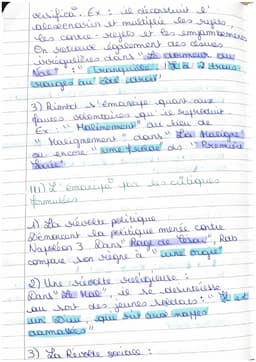 versifica°. Ex : il déconstruit l'
alexandrin et multiplie les rejets,
les contre-rejets et les enjambements
On retrouve également des césures
irrégulières dans "Le dormeur du
Val" : "Tranquille. Il a 2 trous
rouges au côté droit"
3) Rimbd s'émancipe quant aux
fautes volontaires qu'il reproduit
Ex : "Malinement" au lieu de
"Malignement" dans "La Maligne"
ou encore "une froide" ds "Première
Soirée"
III) L'émancip° par les critiques
formulées
1) La révolte politique
Dénonçant la politique menée contre
Napoléon 3. Dans "Rage de César", Rimb
compare son règne à "une orgie"
2) Une révolte religieuse :
Dans "Le Mal", il se désintéresse
au sort des jeunes soldats : "Il est
un Dieu, qui rit aux nappes
damassées"
3) La Révolte sociale :